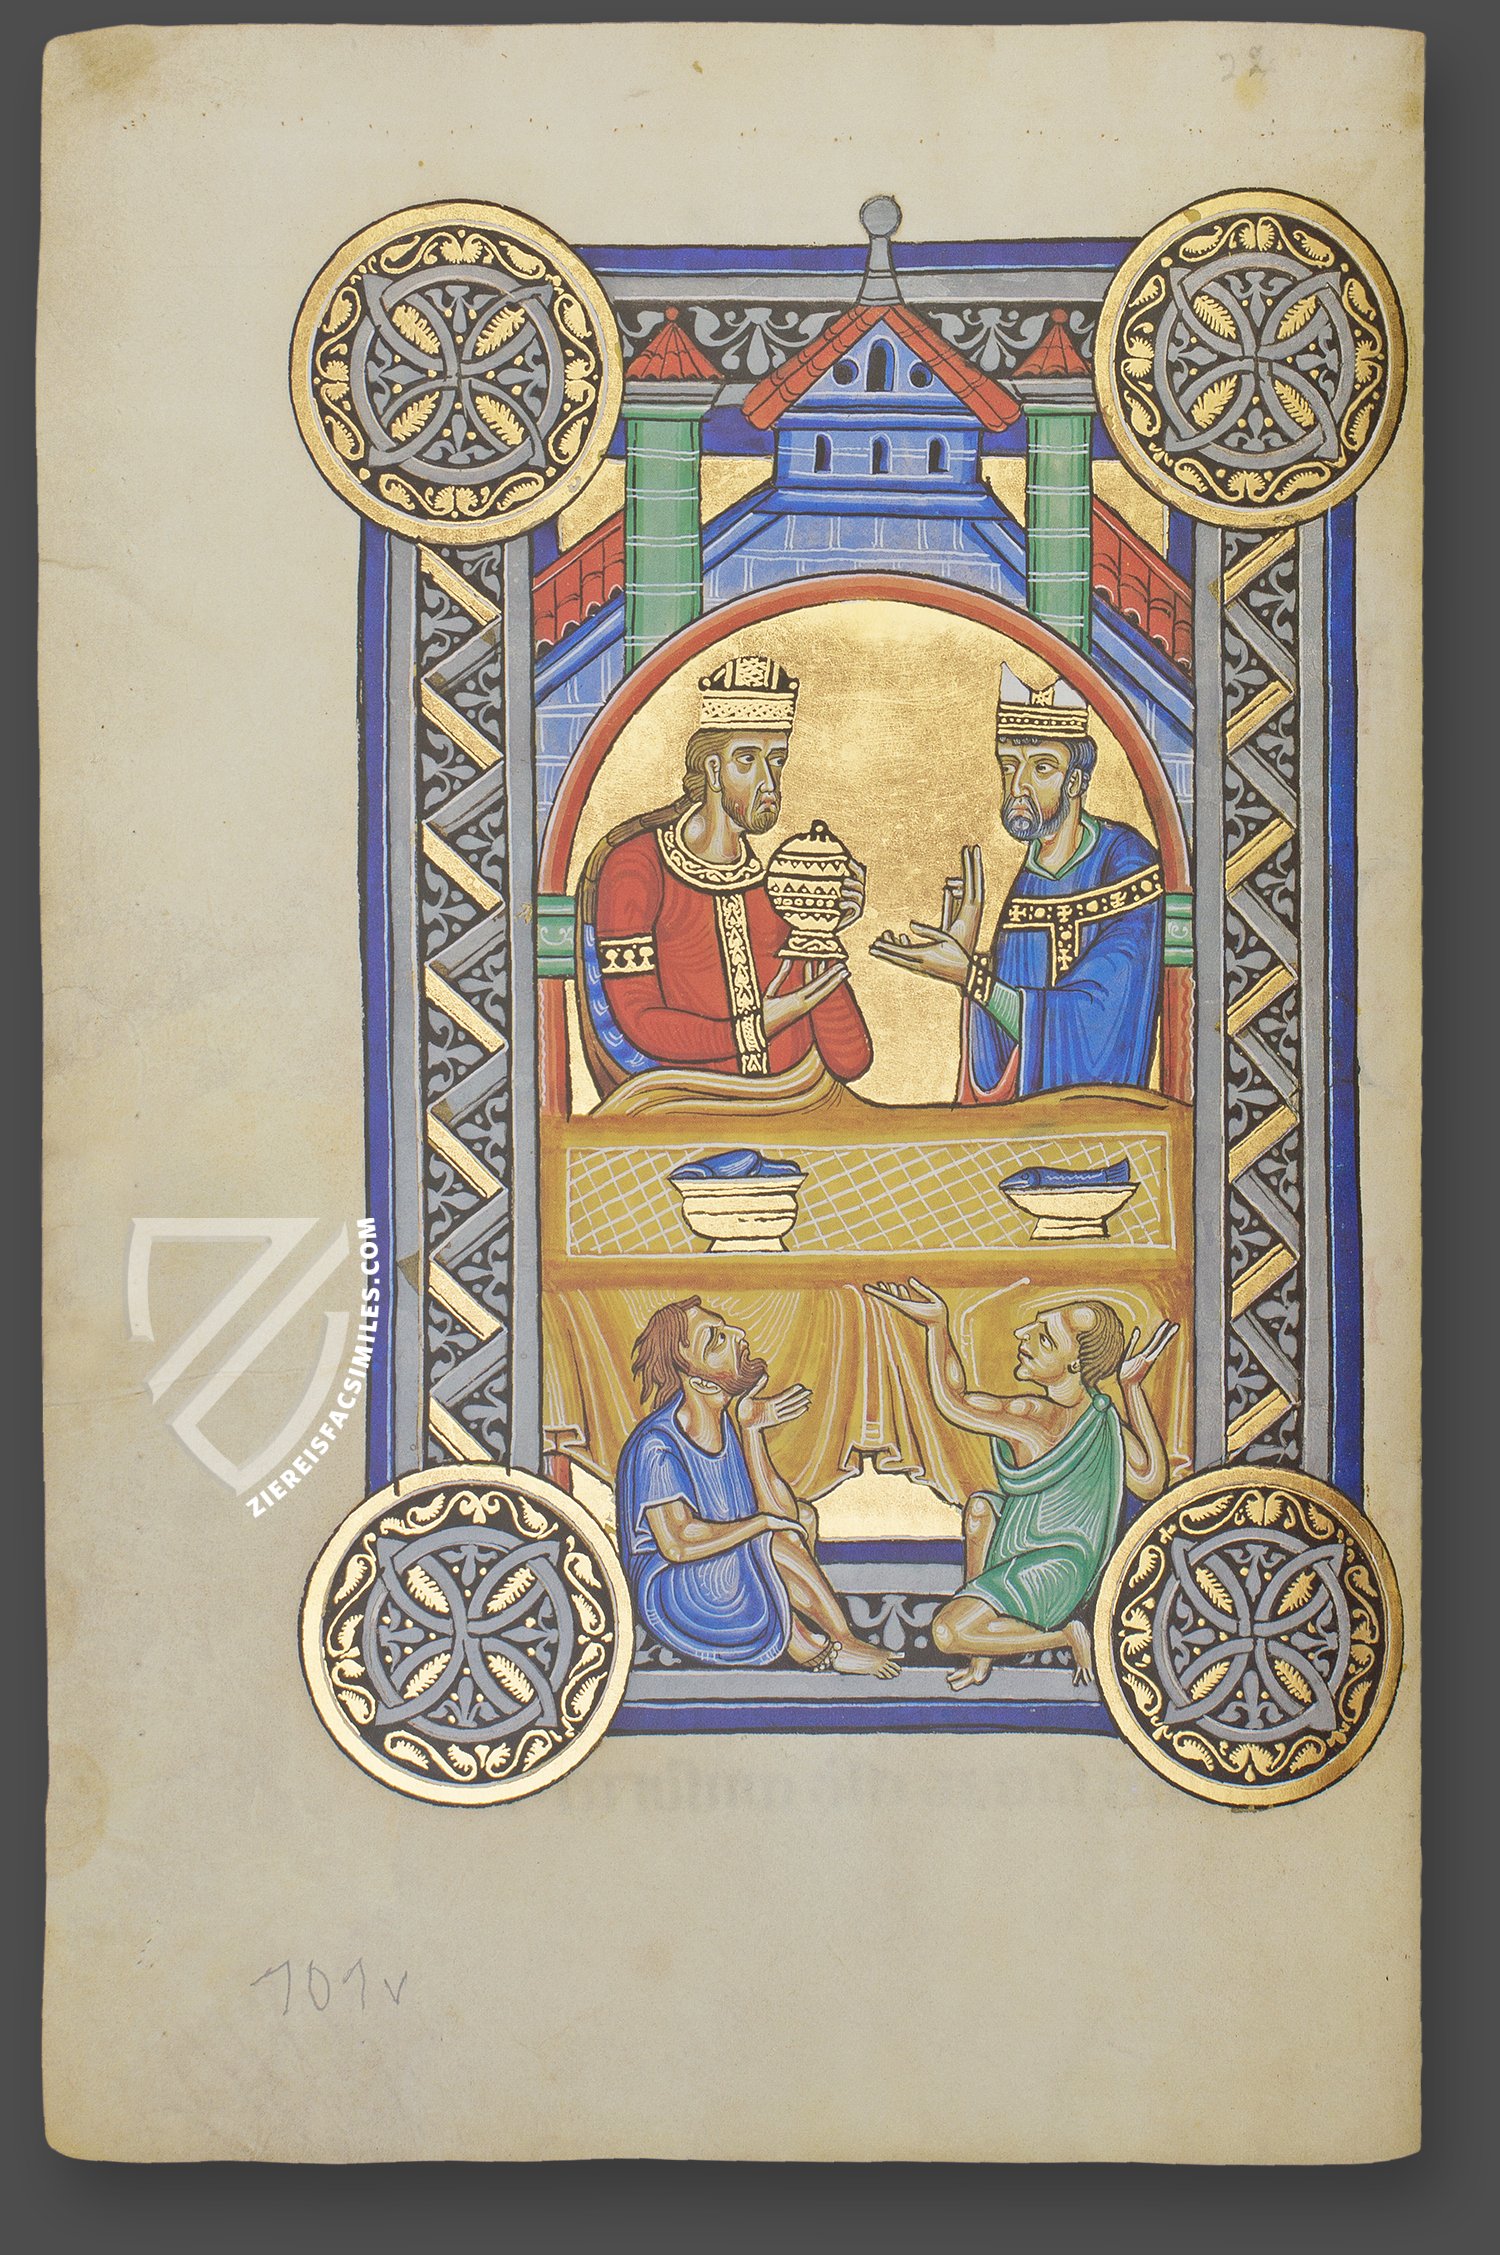 22
ZIEREISFACSIMILES.COM
101v